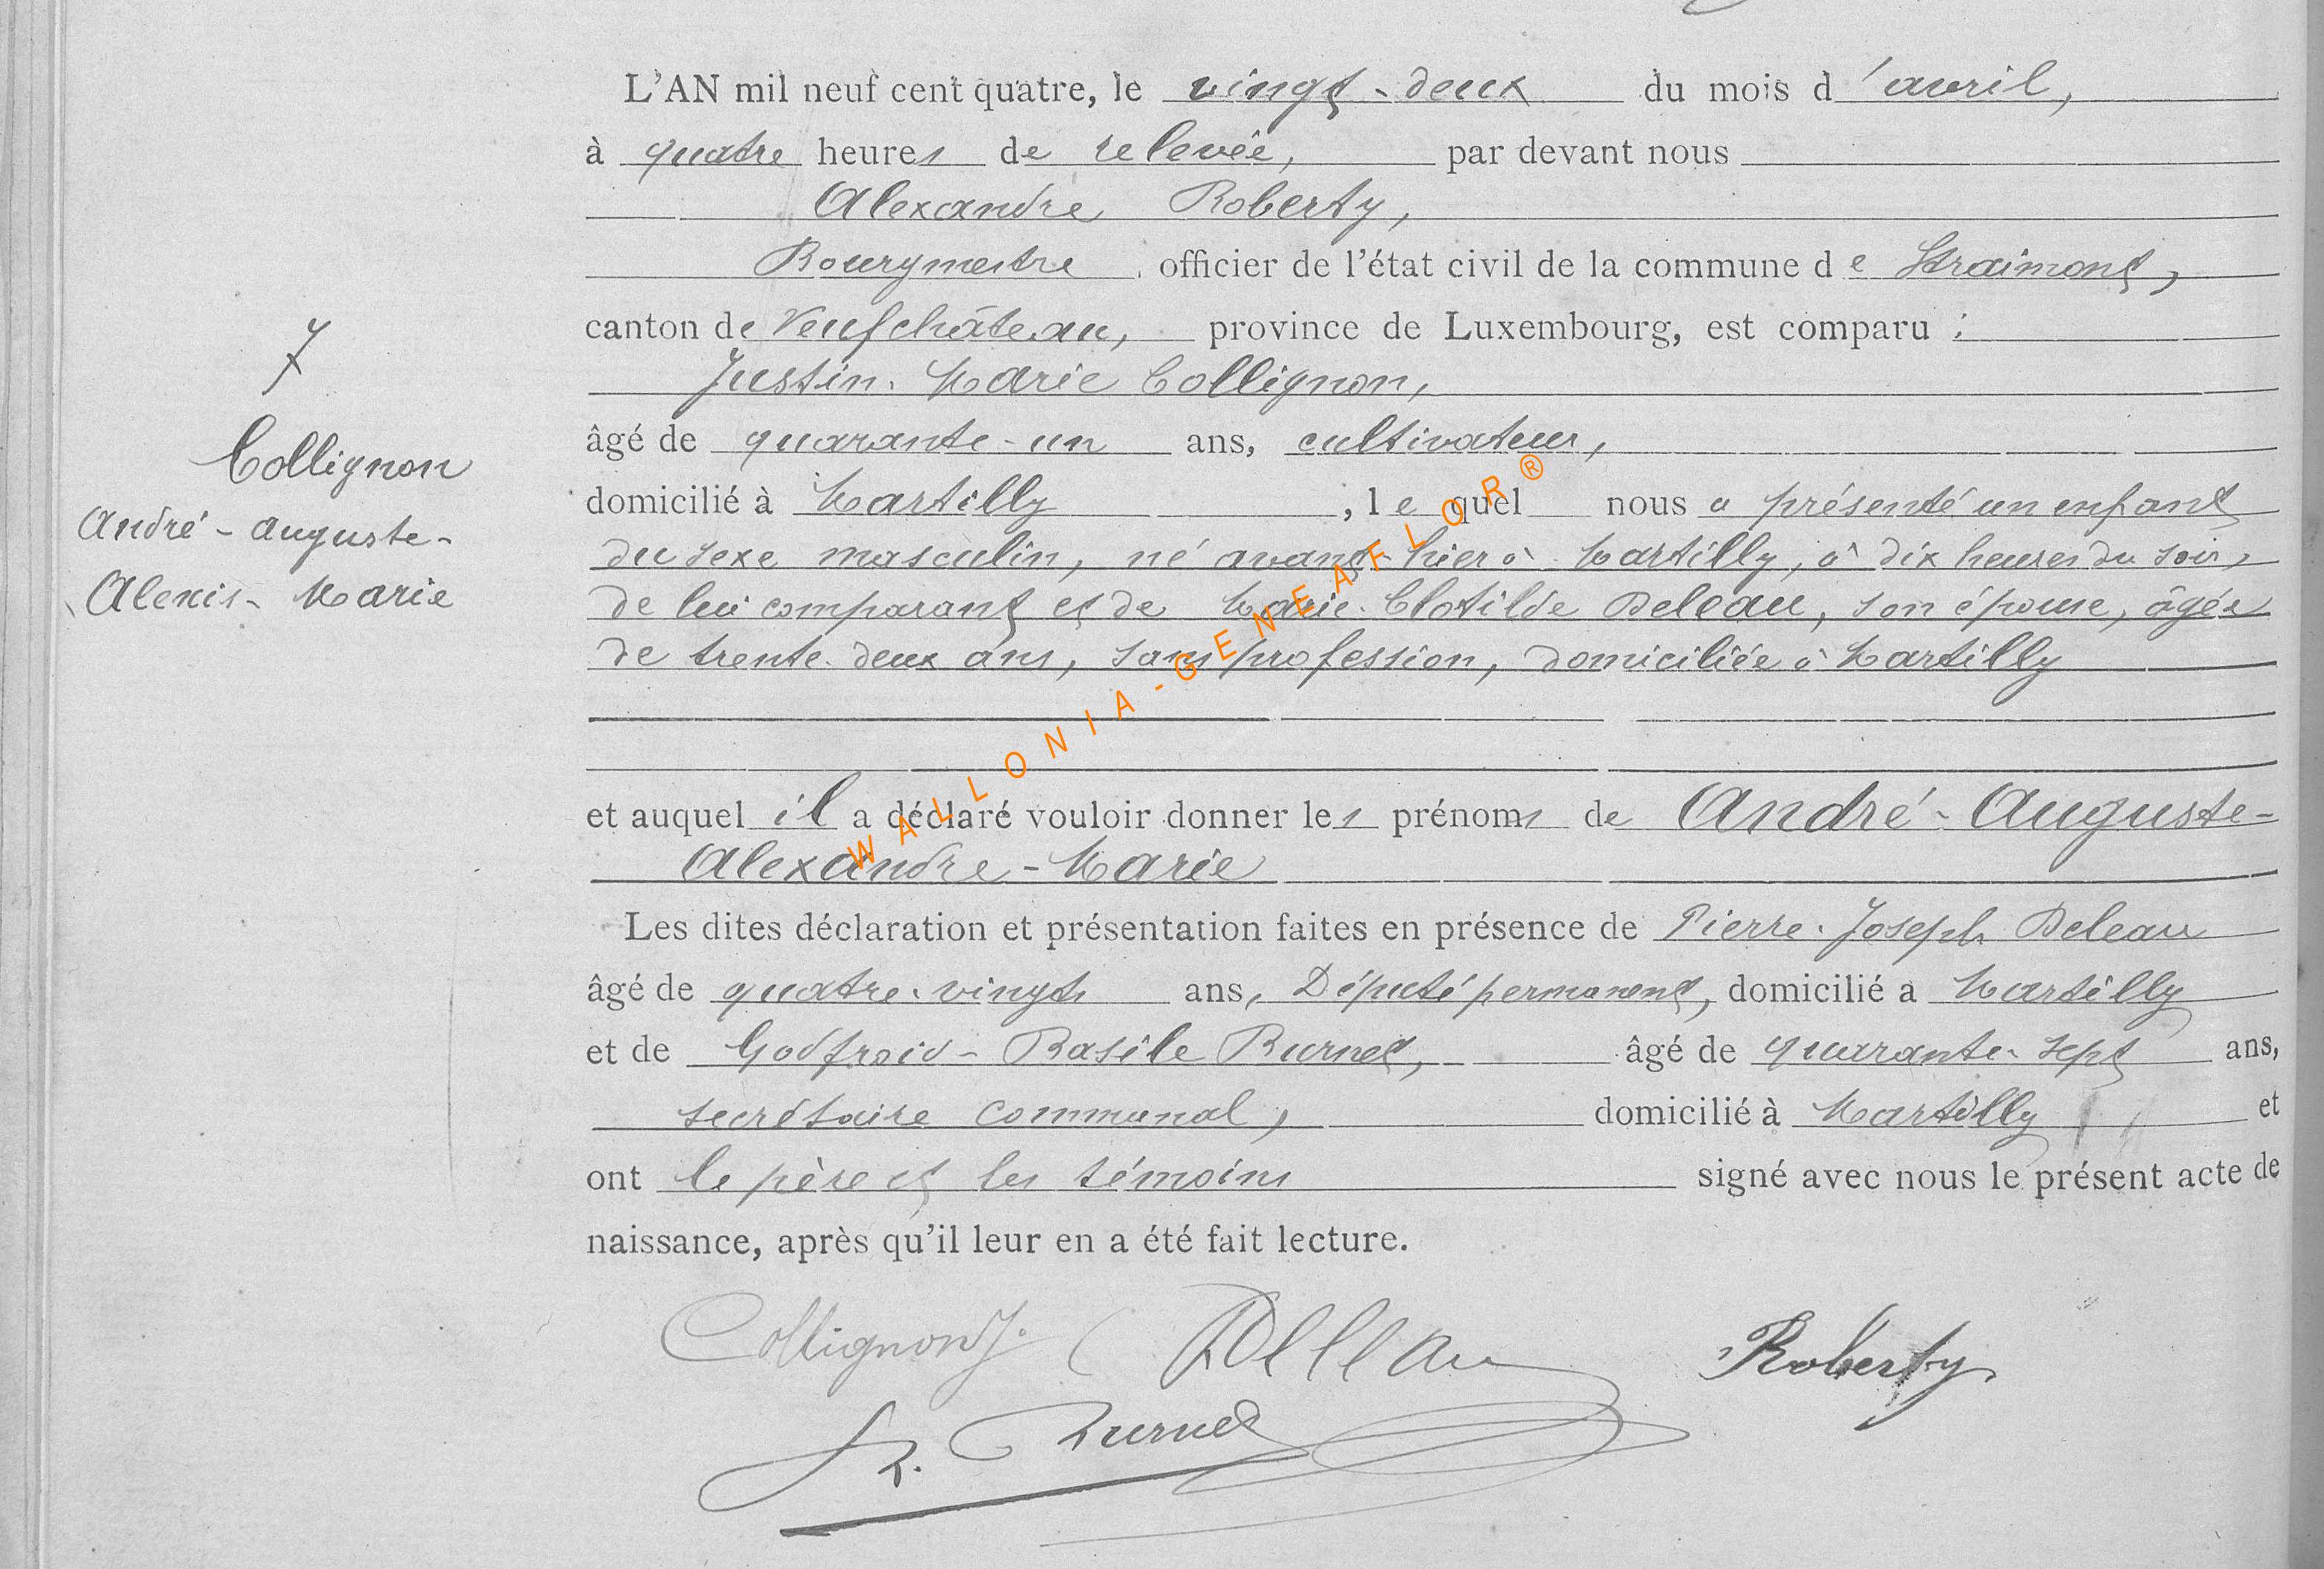 L'AN mil neuf cent quatre, le vingt-deux du mois d'avril,
à quatre heures de relevée, par devant nous
Alexandre Roberty,
Bourgmestre, officier de l'état civil de la commune de Straimont,
canton de Neufchâteau, province de Luxembourg, est comparu :
Justin-Marie Collignon,
âgé de quarante-un ans, cultivateur,
domicilié à Martilly, lequel nous a présenté un enfant
du sexe masculin, né avant-hier à Martilly, à dix heures du soir,
de lui comparant et de Marie-Clotilde Deleau, son épouse, âgée
de trente-deux ans, sans profession, domiciliée à Martilly
et auquel il a déclaré vouloir donner les prénoms de André-Auguste-
Alexandre-Marie
Les dites déclaration et présentation faites en présence de Pierre-Joseph Deleau
âgé de quatre-vingts ans, Député permanent, domicilié a Martilly
et de Godfroid-Basile Burnet, âgé de quarante-sept ans,
secrétaire communal, domicilié à Martilly et
ont le père et les témoins signé avec nous le présent acte de
naissance, après qu'il leur en a été fait lecture.
7
Collignon
André-Auguste-
Alexis-Marie
Collignon J. Deleau Roberty
Burnet
WALLONIA-GENEAFLOR®